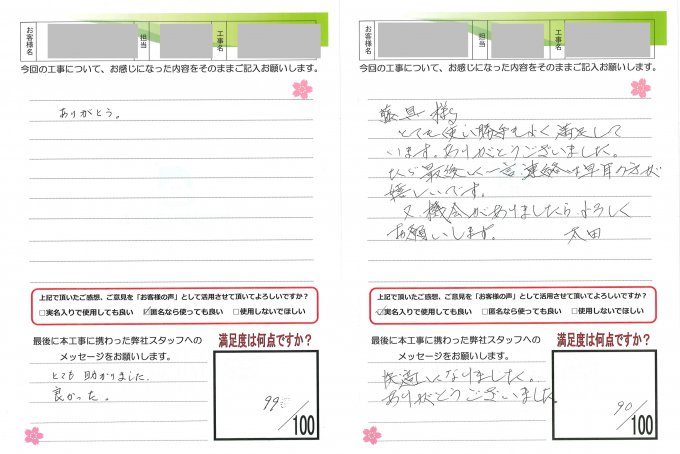 お客様名
担当
工事名
今回の工事について、お感じになった内容をそのままご記入お願いします。
ありがとう。
上記で頂いたご感想、ご意見を「お客様の声」として活用させて頂いてよろしいですか？
□実名入りで使用しても良い ☑匿名なら使っても良い □使用しないでほしい
最後に本工事に携わった弊社スタッフへの
メッセージをお願いします。
とても助かりました.
良かった。
満足度は何点ですか？
99
/100
お客様名
担当
工事名
今回の工事について、お感じになった内容をそのままご記入お願いします。
様
とても使い勝手もよく満足して
います。ありがとうございました。
最後に一言連絡は早耳の方が
嬉しいです。
又、機会がありましたらよろしく
お願いします。 太田
上記で頂いたご感想、ご意見を「お客様の声」として活用させて頂いてよろしいですか？
☑実名入りで使用しても良い □匿名なら使っても良い □使用しないでほしい
最後に本工事に携わった弊社スタッフへの
メッセージをお願いします。
快適になりました。
ありがとうございました
満足度は何点ですか？
90
/100